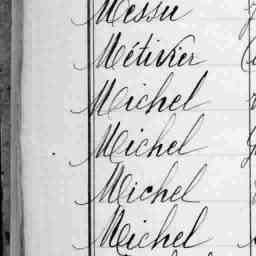 Messu
Métivier
Michel
Michel
Michel
Michel